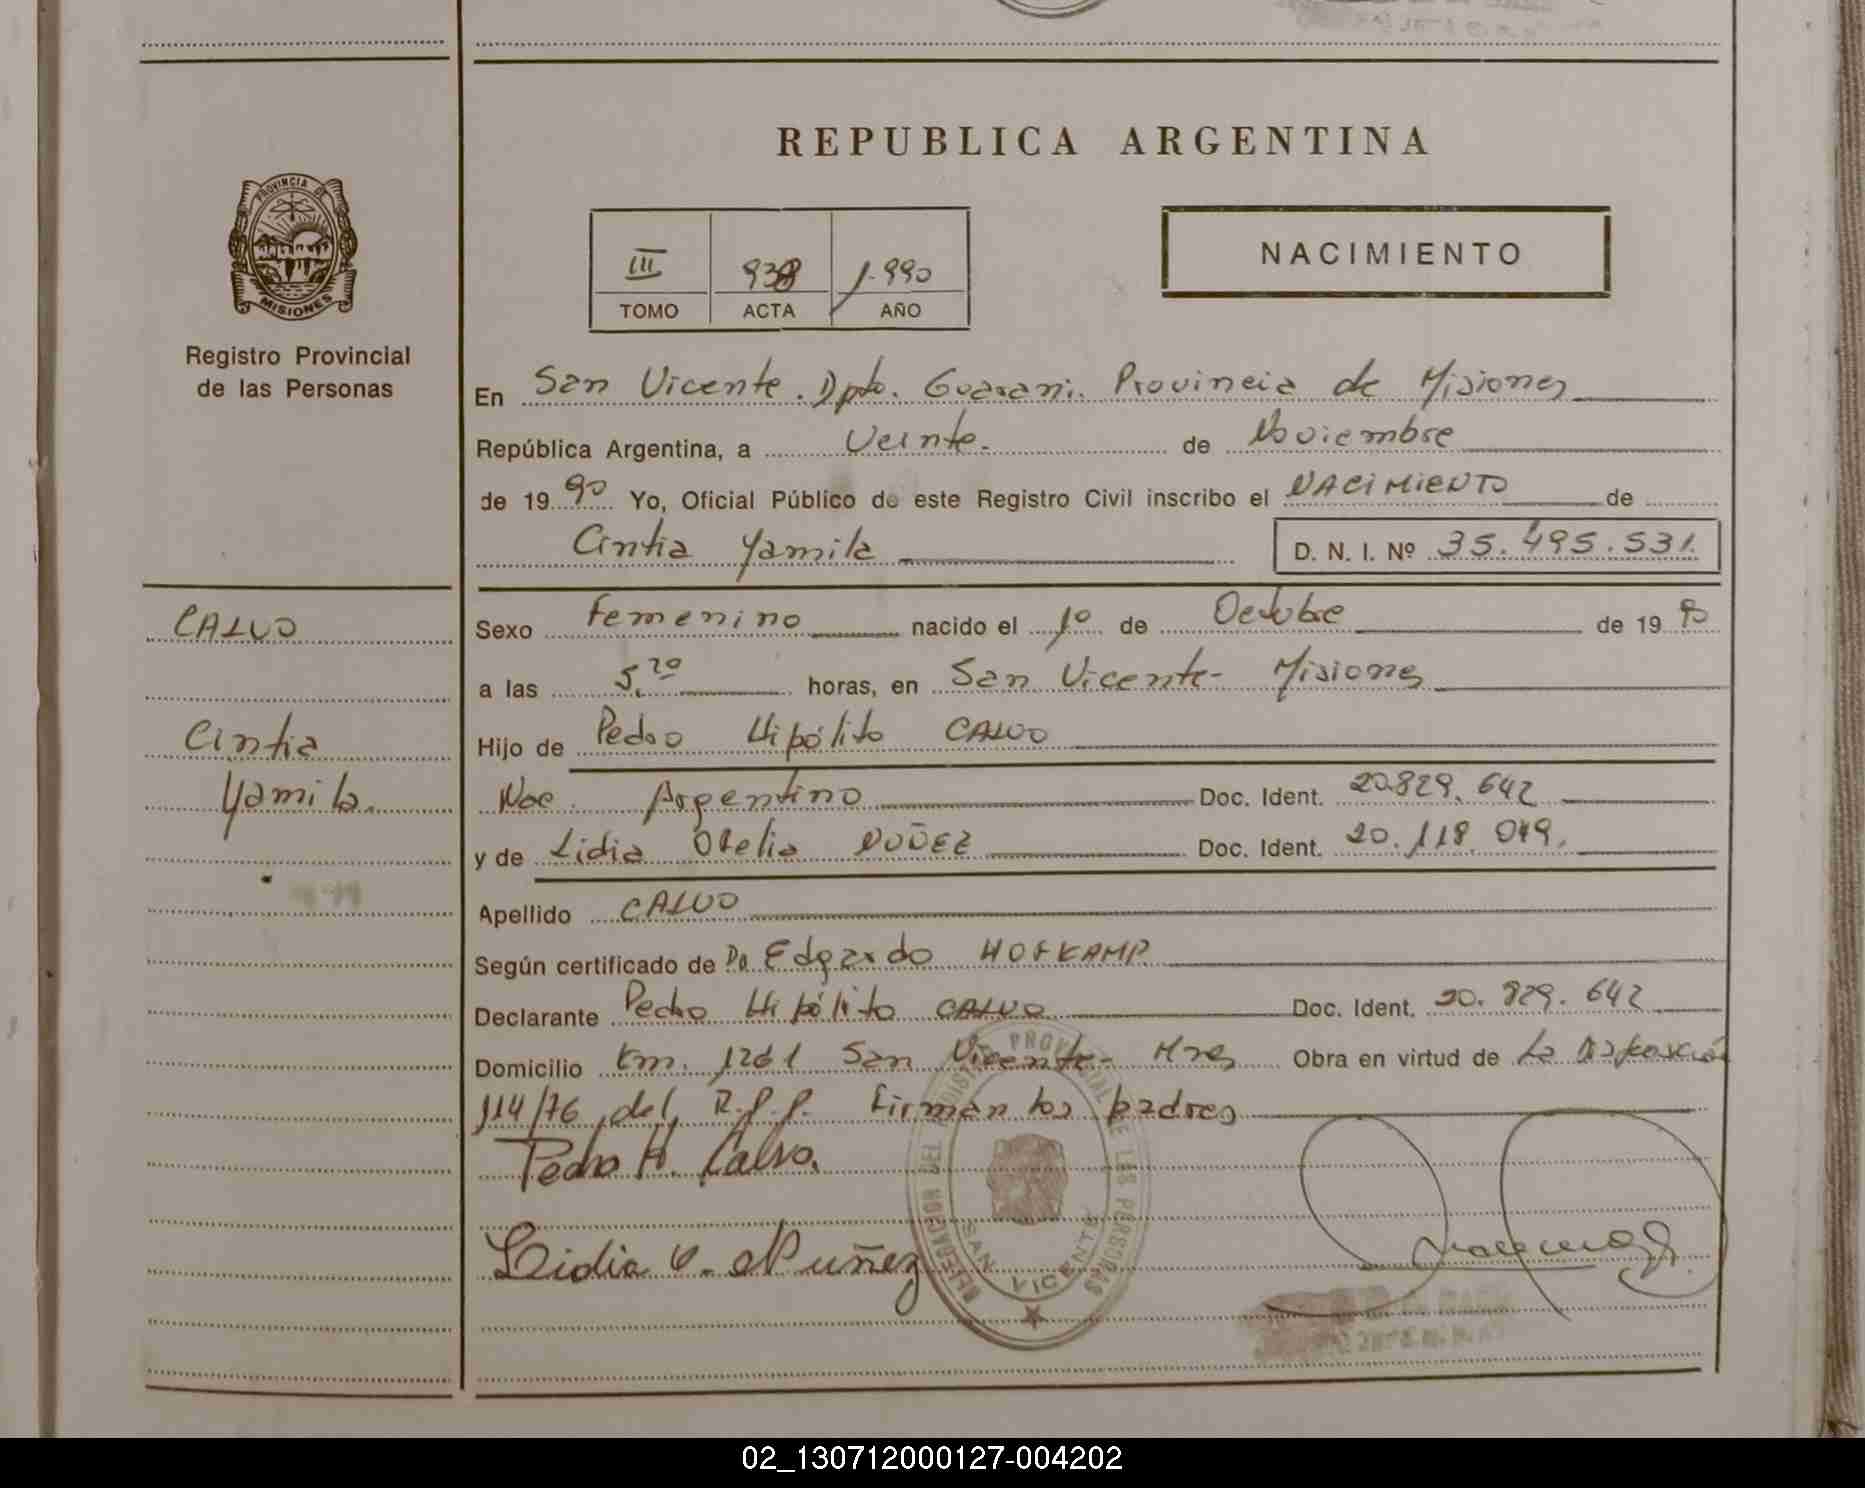 REPUBLICA ARGENTINA
PROVINCIA DE
MISIONES
Registro Provincial
de las Personas
III 938 1.990
TOMO ACTA AÑO
NACIMIENTO
En San Vicente. Dpto. Guarani. Provincia de Misiones
República Argentina, a Veinte. de Noviembre
de 19 90 Yo, Oficial Público de este Registro Civil inscribo el NACIMIENTO de
Cintia Yamila D. N. I. Nº 35.495.531.
CALVO
Cintia
Yamila
Sexo Femenino nacido el 1º de Octubre de 19 90
a las 5.20 horas, en San Vicente- Misiones
Hijo de Pedro Hipólito CALVO
Nac. Argentino Doc. Ident. 20.829.642
y de Lidia Ofelia NUÑEZ Doc. Ident. 20.118.049.
Apellido CALVO
Según certificado de Dr. Edgardo HOFKAMP
Declarante Pedro Hipólito CALVO Doc. Ident. 20.829.642
Domicilio Km. 1261 San Vicente- Mnes Obra en virtud de La Disposición
114/76 del R.P.P. Firman los padres
Pedro H. Calvo.
Lidia O. Nuñez
DELEGACION DEL REGISTRO PROVINCIAL DE LAS PERSONAS
SAN VICENTE
02_130712000127-004202